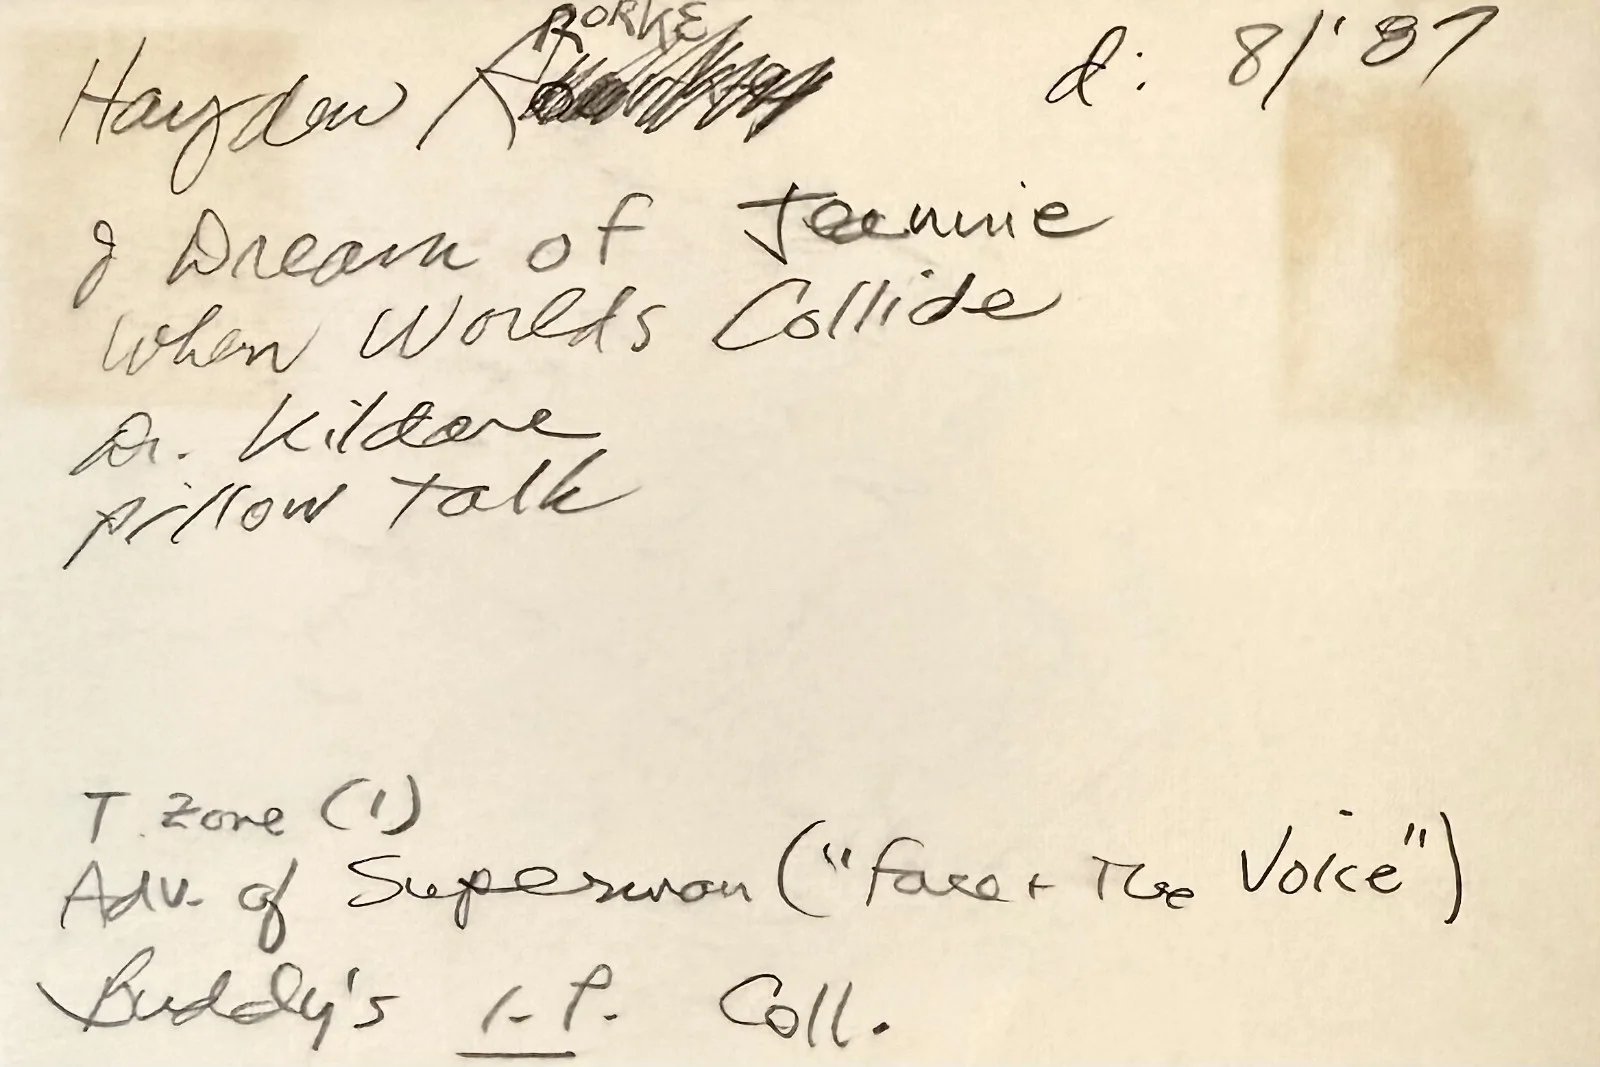 Hayden RORKE d: 8/'87
I Dream of Jeannie
When Worlds Collide
Dr. Kildare
pillow Talk
T. Zone (1)
Adv. of Superman ("Face + The Voice")
Buddy's I.P. Coll.